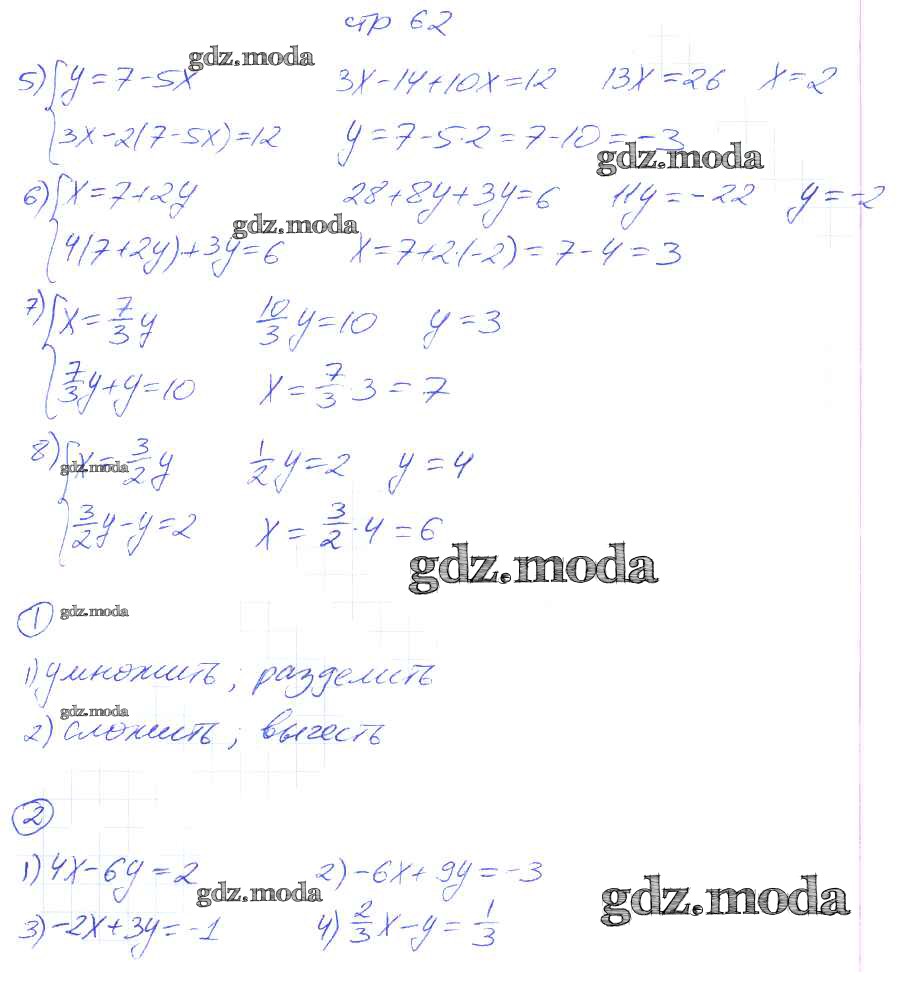 стр 62
gdz.moda
5) { y = 7 - 5x   3x - 14 + 10x = 12   13x = 26   x = 2
3x - 2(7 - 5x) = 12   y = 7 - 5·2 = 7 - 10 = -3
gdz.moda
6) { x = 7 + 2y   28 + 8y + 3y = 6   11y = -22   y = -2
gdz.moda
4(7 + 2y) + 3y = 6   x = 7 + 2·(-2) = 7 - 4 = 3
7) { x = 7/3 y   10/3 y = 10   y = 3
7/3 y + y = 10   x = 7/3 · 3 = 7
8) { x = 3/2 y   1/2 y = 2   y = 4
gdz.moda
3/2 y - y = 2   x = 3/2 · 4 = 6
gdz.moda
1 gdz.moda
1) умножить; разделить
gdz.moda
2) сложить; вычесть
2
1) 4x - 6y = 2   2) -6x + 9y = -3
gdz.moda gdz.moda
3) -2x + 3y = -1   4) 2/3 x - y = 1/3